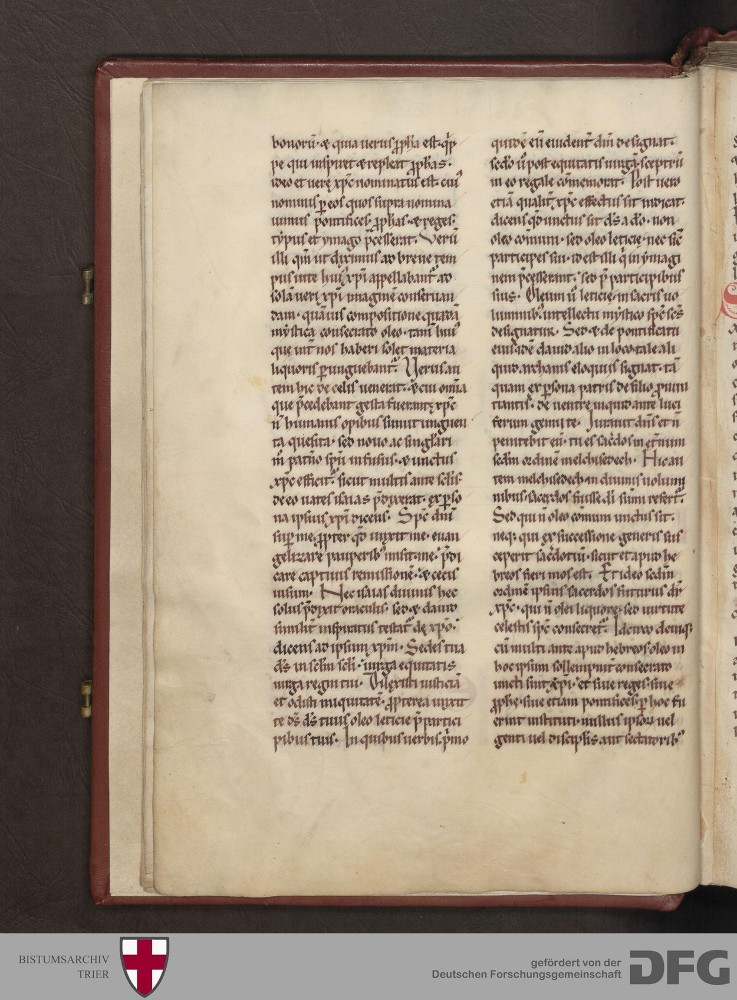 bonorũ· & quia uerus ꝓph̃a est· qͥp
pe qui inspiret & repleat ꝓph̃as·
ideo et uere xp̃c nominatus est· cui᷒
nominis ꝑ eos quos supra nomina
uimus pontifices· ꝓph̃as· & reges·
typus et ymago p̃cesserat· Verũ
illi qͣm ut diximus ad breue tem
pus inte hui᷒ xp̃i appellabant᷑ ad
solã ueri xp̃i imaginẽ conseruan
dam· quãuis compositione quadã
mystica consecrato oleo· tam̃ hui᷒
que int̃ nos haberi solet materia
liquoris ꝑunguebant᷑· Verus au
tem hic de celis uenerat· & cui om̃ia
que p̃cedebant gesta fuerunt· xp̃c
ñ humanis opibus sumit unguen
ta quesita· sed nouo ac singulari
m̃ patño sp̃u infusus· & unctus
xp̃c efficit᷑· sicut multis ante sc̃lis
de eo uates isaias p̃dixerat· ex ꝑso
na ipsius xp̃i dicens· Sp̃c dñi
suꝑ me· ꝓpter qd̃ unxit me· euan
gelizare pauperib᷒ misit me· p̃di
care captiuis remissionẽ· & cecis
uisum· Nec isaias diuinus hec
solus p̃dixit oraculis· sed & dauid
similit̃ inspiratus testat᷑ de xp̃o·
dicens ad ipsum xp̃m· Sedes tua
d̃s in sc̃lm sc̃li· uirga equitatis
uirga regni tui· Dilexisti iusticiã
et odisti iniquitatẽ· ꝓpterea unxit
te d̃s d̃s tuus oleo leticie p̃ partici
pibus tuis· In quibus uerbis· p̃mo
quidẽ eũ euident̃ dm̃ designat·
sc̃do ũ post equitatis uirgã· sceptrũ
in eo regale cõmemorat· Post uero
etiã qualit̃ xp̃c effectus sit indicat·
dicens qd̃ unctus sit d̃s a d̃o· non
oleo cõmuni· sed oleo leticie· nec sic̃
participes sui· id est illi qͥ in ymagi
nem p̃cesserant· sed p̃ participibus
suis· Oleum ũ leticie· in sacris uo
luminib᷒· intellectu mystico sp̃c sc̃s
designatur· Sed & de pontificatu
eiusdẽ dauid alio in loco tale ali
quid archanis eloquiis signat· tã
quam ex ꝑsona patris de filio ꝓnun
tiantis· de uentre inquid ante luci
ferum genui te· Iurauit dñs et ñ
penitebit eũ· tu es sac̃dos in et̃num
sc̃dm ordinẽ melchisedech· Hic au
tem melchisedech in diuinis uolumi
nibus sacerdos fuisse di sum̃i refert᷑·
Sed qui ñ oleo cõmuni unctus sit·
neq; qui ex successione generis sus
ceperit sac̃dotiũ· sicut et apud he
breos fieri mos est· Et ideo sc̃dm
ordinẽ ipsius sacerdos futurus dr̃
xp̃c· qui ñ olei liquore· sed uirtute
celestis sp̃c consecret᷑· Idcirco deniq;
cũ multi ante apud hebreos oleo in
hoc ipsum sollempnit̃ consecrato
uncti sint xp̃i· et siue reges· siue
ꝓph̃e· siue etiam pontifices ꝑ hoc fu
erint instituti· nullus ipsoꝝ uel
genti uel discipl̃is aut sectatorib᷒
BISTUMSARCHIV
TRIER
gefördert von der
Deutschen Forschungsgemeinschaft
DFG